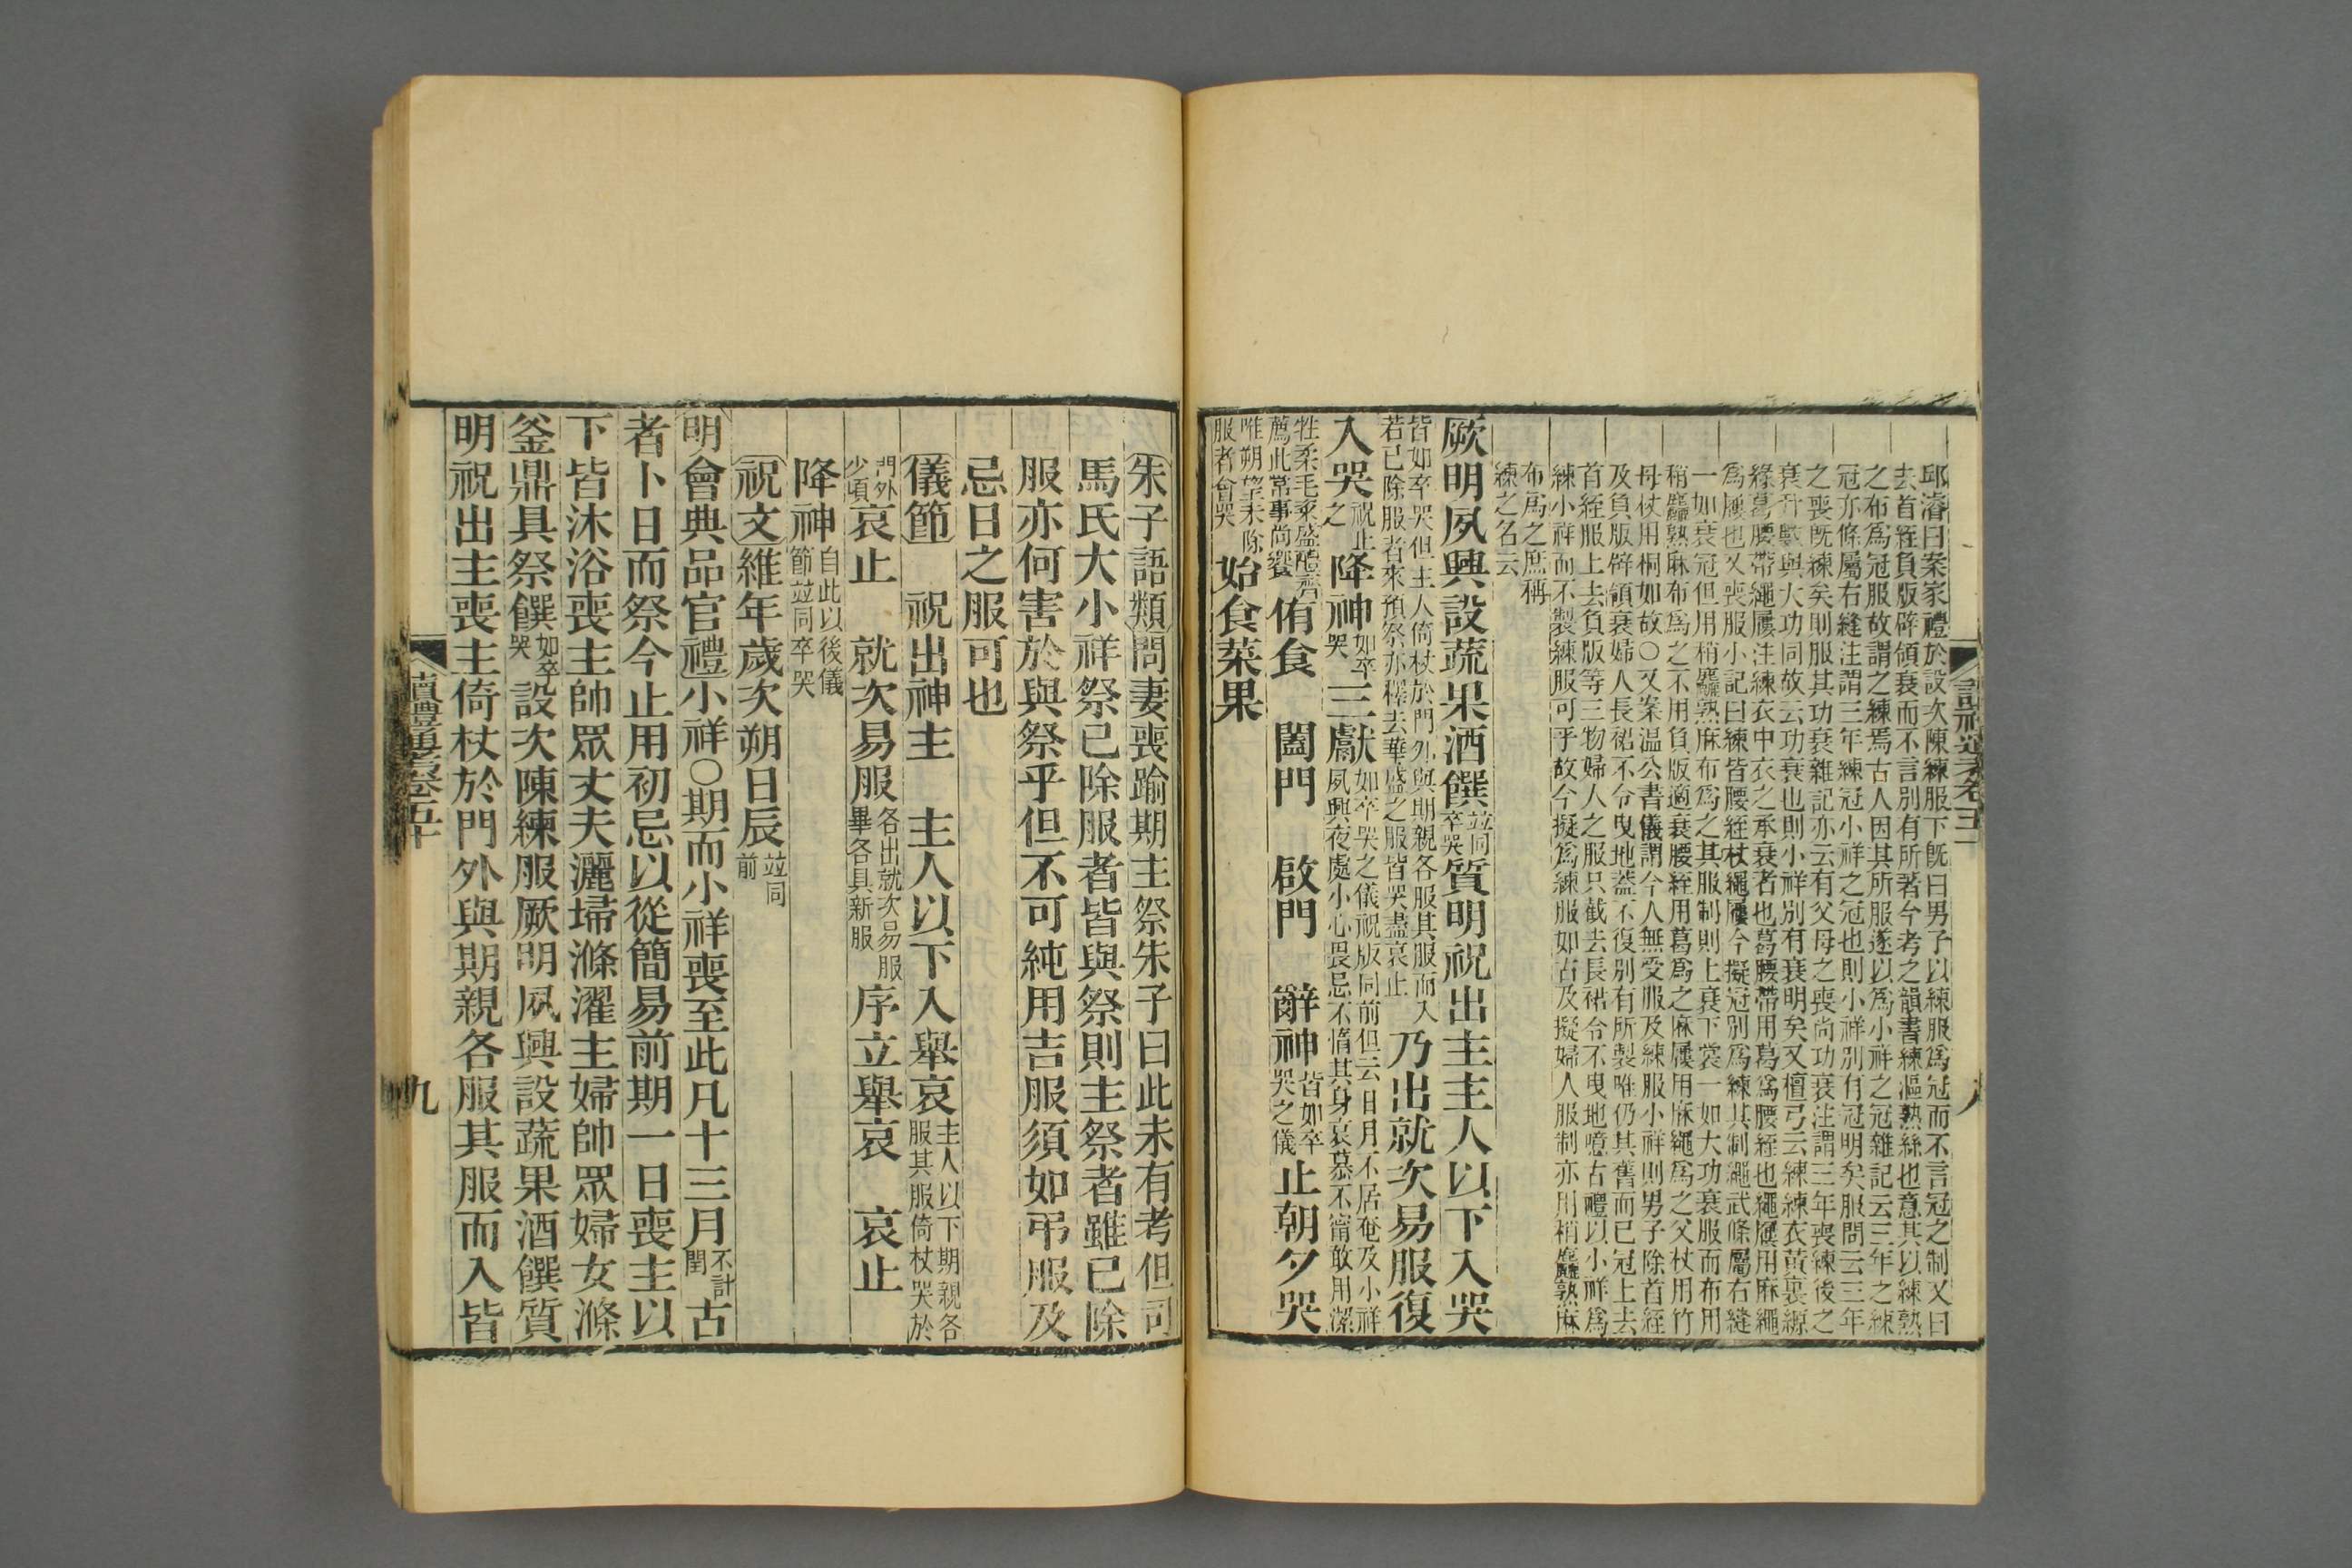 邱濬曰案家禮於設次陳練服下旣曰男子以練服爲冠而不言冠之制又曰
去首絰負版辟領衰而不言別有所著今考之韻書練漚熟絲也意其以練熟
之布爲冠服故謂之練焉古人因其所服遂以爲小祥之冠雜記云三年之練
冠亦條屬右縫注謂三年練冠小祥之冠也則小祥別有冠明矣服問云三年
之喪旣練矣則服其功衰雜記亦云有父母之喪尚功衰注謂三年喪練後之
衰升數與大功同故云功衰也則小祥別有衰明矣又檀弓云練練衣黃裏縓
緣葛腰帶繩屨注練衣中衣之承衰者也葛腰帶用葛爲腰絰也繩屨用麻繩
爲屨也又喪服小記曰練皆腰絰杖繩屨今擬冠別爲練其制繩武條屬右縫
一如衰冠但用稍麤熟麻布爲之其服制則上衰下裳一如大功衰服而布用
稍麤熟麻布爲之不用負版適衰腰絰用葛爲之麻屨用麻繩爲之父杖用竹
母杖用桐如故○又案溫公書儀謂今人無受服及練服小祥則男子除首絰
及負版辟領衰婦人長裙不令曳地蓋不復別有所製唯仍其舊而已冠上去
首絰服上去負版等三物婦人之服只截去長裙令不曳地噫古禮以小祥爲
練小祥而不製練服可乎故今擬爲練服如古及擬婦人服制亦用稍麤熟麻
布爲之庶稱
練之名云
厥明夙興設蔬果酒饌竝同卒哭質明祝出主主人以下入哭
皆如卒哭但主人倚杖於門外與期親各服其服而入
若已除服者來預祭亦釋去華盛之服皆哭盡哀止乃出就次易服復
入哭祝止之降神如卒哭三獻如卒哭之儀祝版同前但云日月不居奄及小祥
夙興夜處小心畏忌不惰其身哀慕不甯敢用潔
牲柔毛粢盛醴齊
薦此常事尚饗侑食 闔門 啟門 辭神皆如卒哭之儀止朝夕哭
唯朔望未除
服者會哭始食菜果
朱子語類問妻喪踰期主祭朱子曰此未有考但司
馬氏大小祥祭已除服者皆與祭則主祭者雖已除
服亦何害於與祭乎但不可純用吉服須如弔服及
忌日之服可也
儀節 祝出神主 主人以下入舉哀主人以下期親各
服其服倚杖哭於
門外
少頃哀止 就次易服各出就次易服
畢各具新服序立舉哀 哀止
降神自此以後儀
節竝同卒哭
祝文維年歲次朔日辰竝同前
明會典品官禮小祥○期而小祥喪至此凡十三月不計閏古
者卜日而祭今止用初忌以從簡易前期一日喪主以
下皆沐浴喪主帥眾丈夫灑埽滌濯主婦帥眾婦女滌
釜鼎具祭饌如卒哭設次陳練服厥明夙興設蔬果酒饌質
明祝出主喪主倚杖於門外與期親各服其服而入皆
讀禮通考卷五十
九